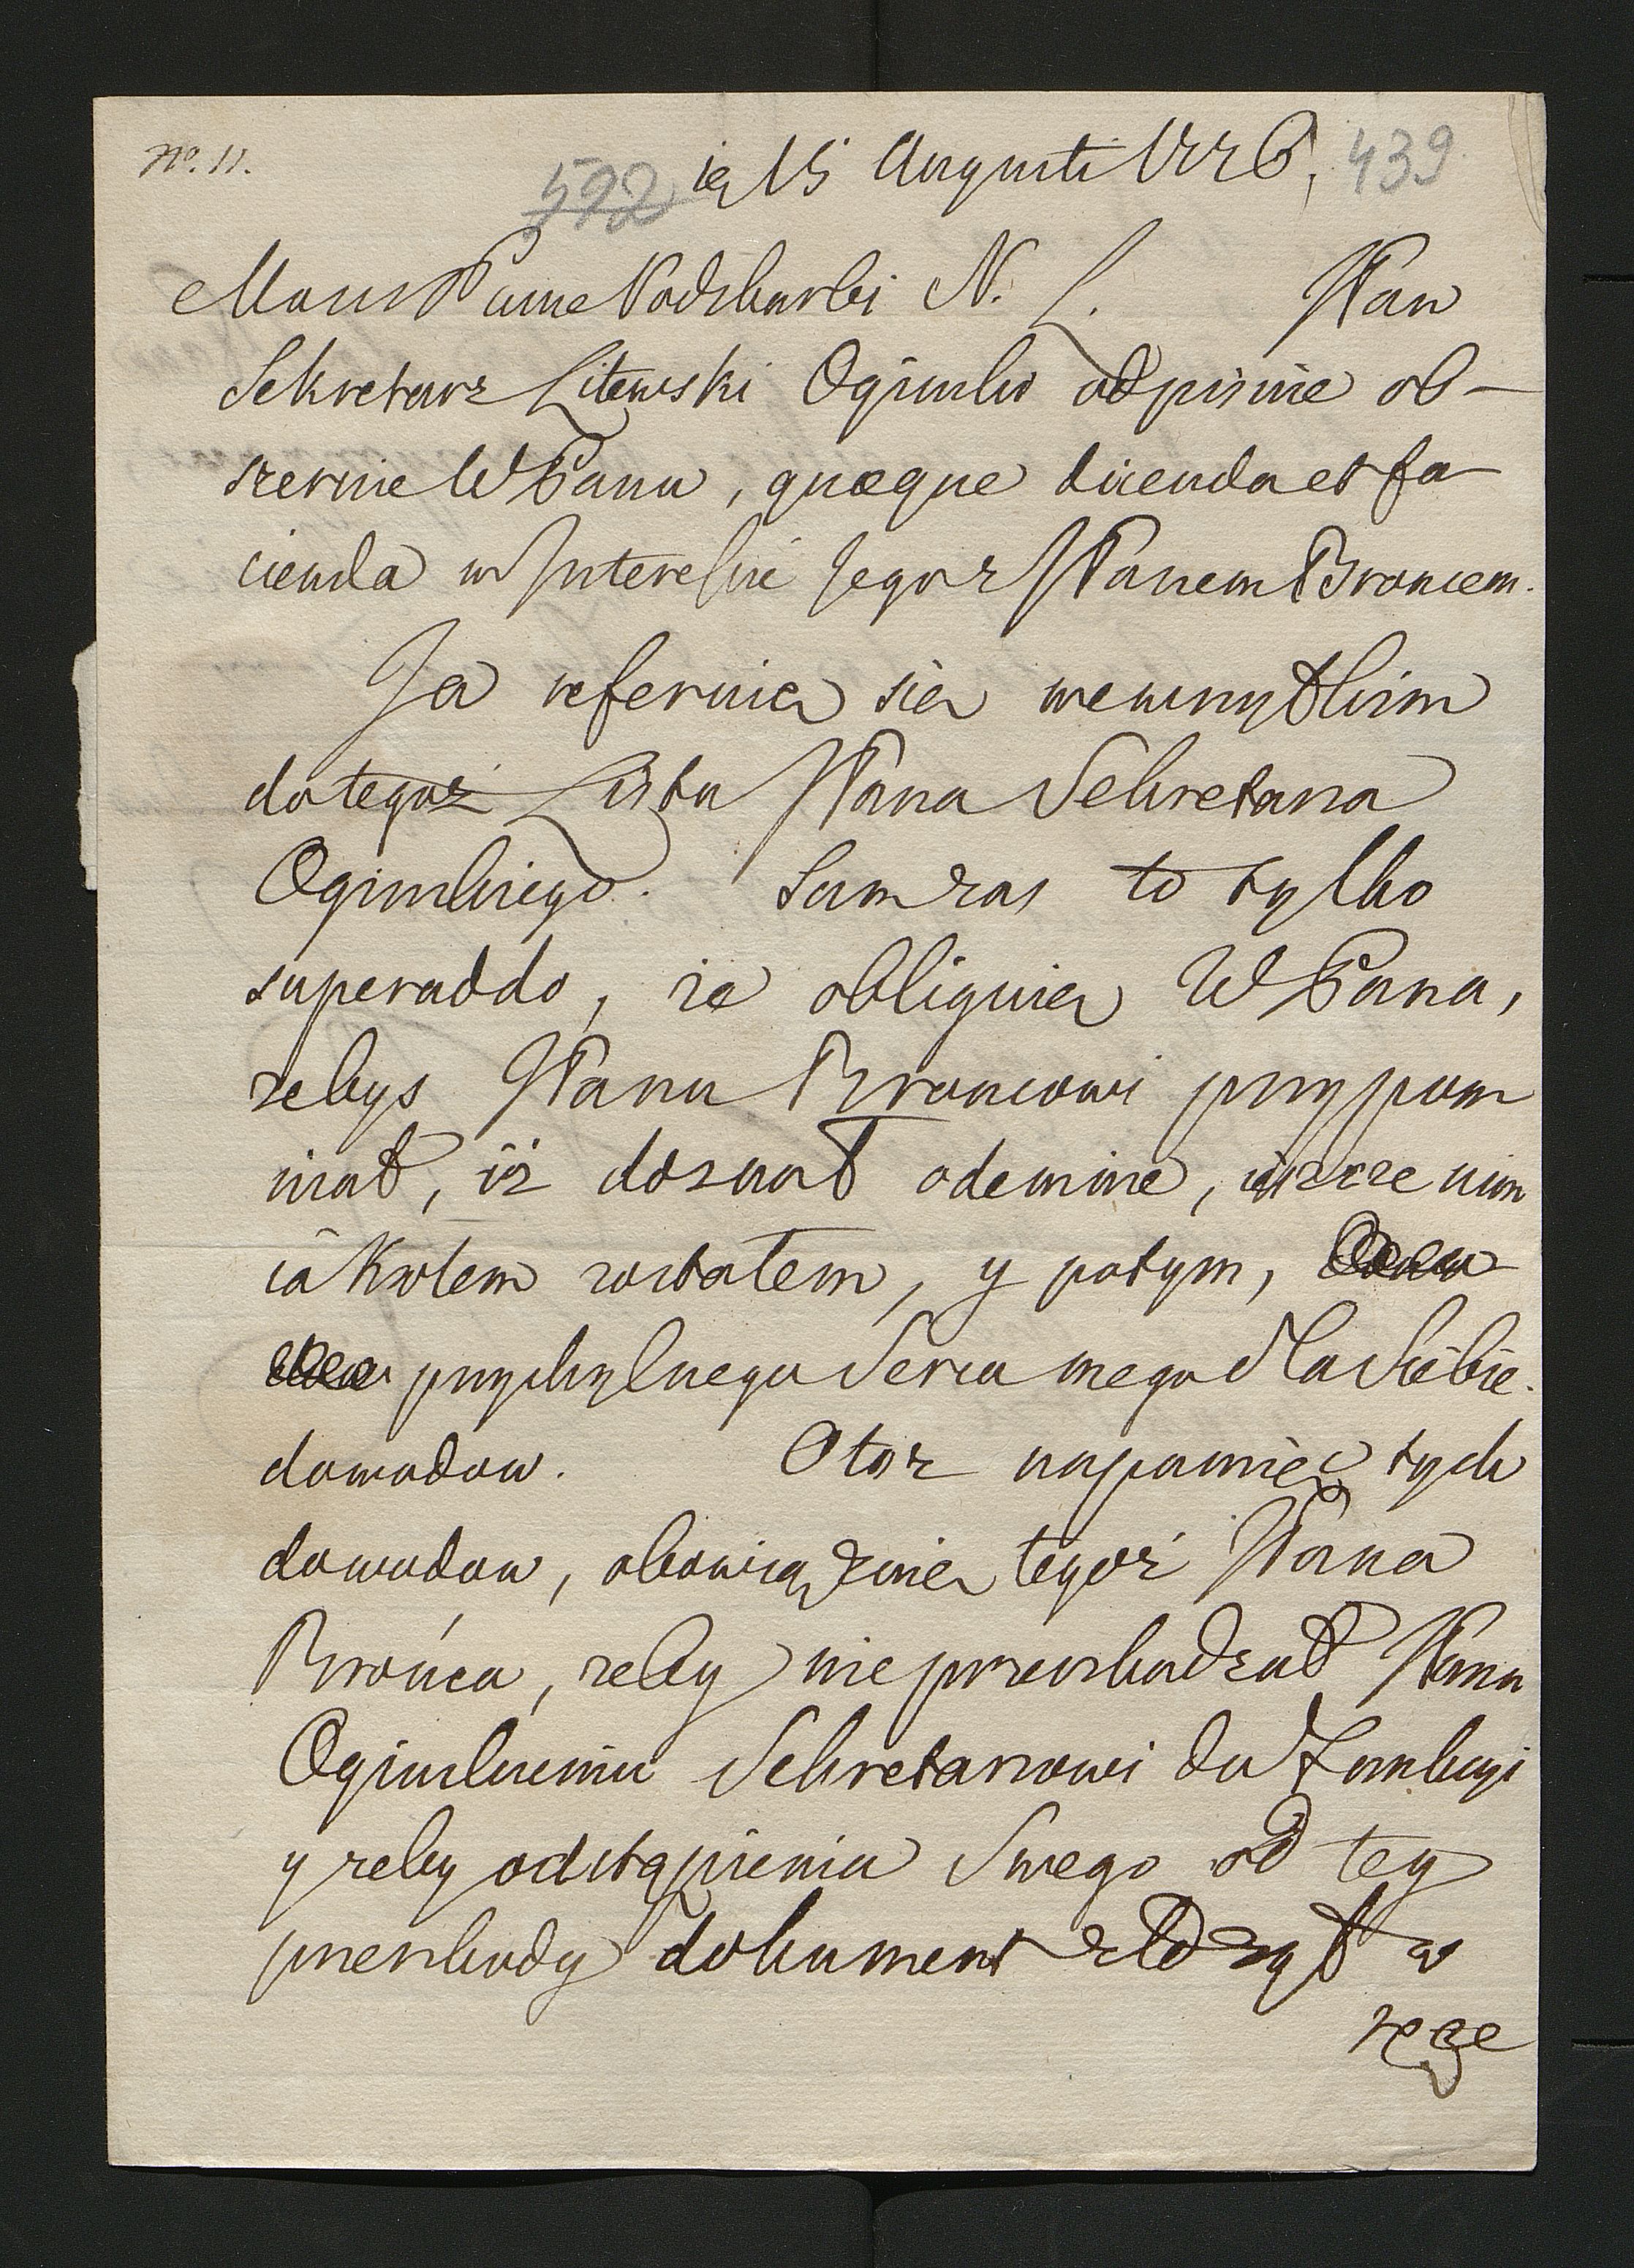 No. 11.
592 ig 15 Augusti 1776, 439
Mons Panie Podskarbi N. L. JPan
Sekretarz Litewski Ogiński odpisuie ob-
szernie WPanu, quæque dicenda et fa
cienda w Interesie Jego z JPanem Broncem.
Ja referuię się we wszystkim
do tegoż Listu JPana Sekretarza
Ogińskiego. Sam zas to tylko
superaddo, ze obliguię WPana,
zebys JPanu Broncowi przypom
niał, iż doznał odemnie, ieszcze nim
ia Krolem zostałem, y potym,
przychylnego Serca mego dla Siebie
dowodow. Otoz na pamięć tych
dowodow, obowiązuię tegoż JPana
Brońca, zeby nie przeszkadzał JPanu
Ogińskiemu Sekretarzowi do Funkcyi
y zeby odstąpienia Swego od tey
przeszkody dokument złozył w
ręce